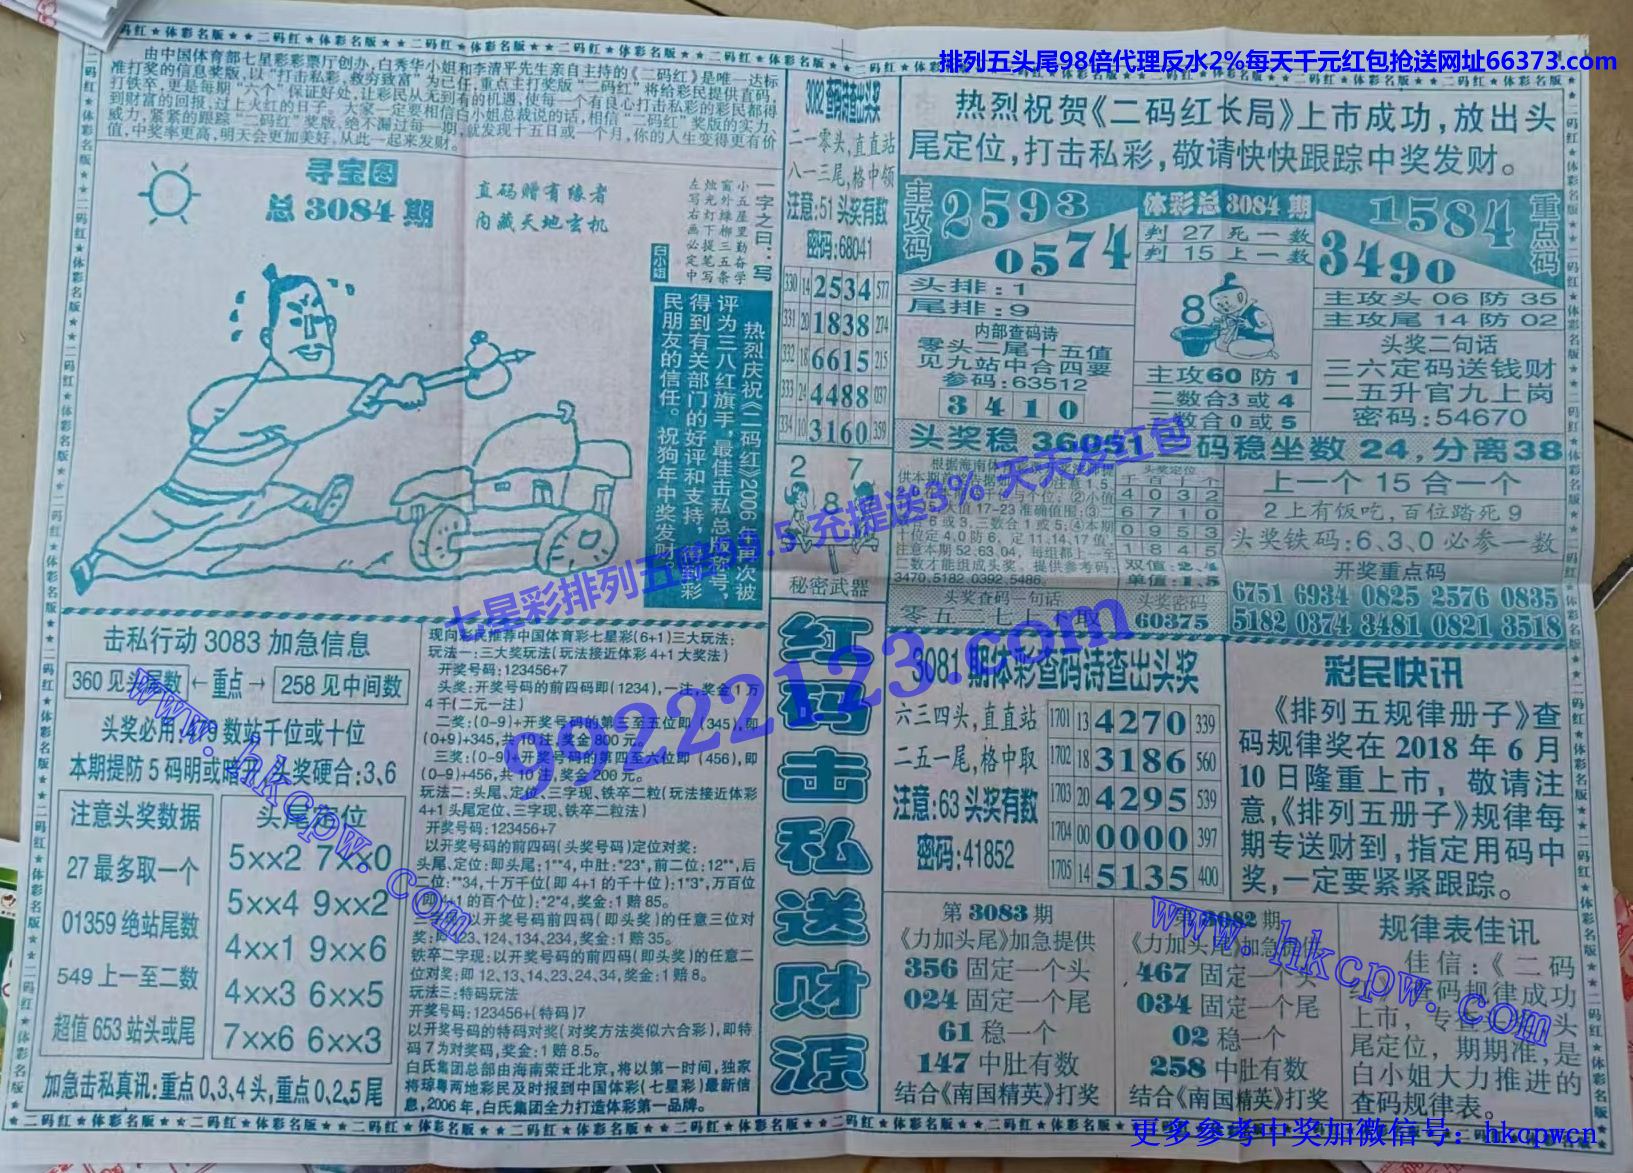 排列五头尾98倍代理反水2%每天千元红包抢送网址66373.com
由中国体育部七星彩彩票厅创办,白秀华小姐和李清平先生亲自主持的《二码红》是唯一达标
准打奖的信息奖版,以“打击私彩,救穷致富”为己任,重点主打奖版“二码红”将给彩民提供直码,
打铁卒,更是每期“六个”保证好处,让彩民从无到有的机遇,使每一个有良心打击私彩的彩民都得
到财富的回报,过上火红的日子。大家一定要相信白小姐总裁说的话,相信“二码红”奖版的实力、
威力,紧紧的跟踪“二码红”奖版,绝不漏过每一期,就发现十五日或一个月,你的人生变得更有价
值,中奖率更高,明天会更加美好,从此一起来发财。
寻宝图
总3084期
直码赠有缘者
内藏天地玄机
一字之曰:写
小五星里勤奋学
窗外绿柳三五条
烛光灯下提笔写
左写右画必定中
白小姐
热烈庆祝《二码红》2006年再次被
评为三八红旗手,最佳击私总版称号,
得到有关部门的好评和支持,得到彩
民朋友的信任。祝狗年中奖发财
二一零头,直直站
八一三尾,格中领
注意:51头奖有数
密码:68041
330 14 2534 577
331 20 1838 274
332 18 6615 215
333 24 4488 037
334 10 3160 359
2 7
8
秘密武器
热烈祝贺《二码红长局》上市成功,放出头
尾定位,打击私彩,敬请快快跟踪中奖发财。
主攻码
2593
0574
体彩总3084期
判27死一数
判15上一数
1584
3490
重点码
头排:1
尾排:9
内部查码诗
零头二尾十五值
见九站中合四要
参码:63512
3 4 1 0
8
主攻60防1
二数合3或4
数合0或5
主攻头06防35
主攻尾14防02
头奖二句话
三六定码送钱财
二五升官九上岗
密码:54670
头奖稳36051
码稳坐数24,分离38
头奖定位
千百十个
4 0 3 2
6 7 1 0
0 9 5 3
1 8 4 5
双值:2.4
单值:1.5
注意本期52、63、04,每组都上一至
二数才能组成头奖。提供参考码:
3470、5182、0392、5486。
头奖查码一句话
头奖密码
60375
上一个15合一个
2上有饭吃,百位踏死9
头奖铁码:6、3、0必参一数
开奖重点码
6751 6934 0825 2576 0835
5182 0374 3481 0821 3518
七星彩排列五赔99.5 充提送3% 天天发红包
99222123.com
击私行动3083加急信息
360见头尾数 ←重点→ 258见中间数
头奖必用:479数站千位或十位
本期提防5码明或暗开,头奖硬合:3、6
注意头奖数据
27最多取一个
01359绝站尾数
549上一至二数
超值653站头或尾
头尾定位
5××2 7××0
5××4 9××2
4××1 9××6
4××3 6××5
7××6 6××3
加急击私真讯:重点0、3、4头,重点0、2、5尾
现向彩民推荐中国体育彩七星彩(6+1)三大玩法:
玩法一:三大奖玩法(玩法接近体彩4+1大奖法)
开奖号码:123456+7
头奖:开奖号码的前四码即(1234),一注,奖金1万
4千(二元一注)
二奖:(0-9)+开奖号码的第三至五位即(345),即
(0+9)+345,共10注,奖金800元。
三奖:(0-9)+开奖号码的第四至六位即(456),即
(0-9)+456,共10注,奖金200元。
玩法二:头尾、定位、三字现、铁卒二粒(玩法接近体彩
4+1头尾定位、三字现、铁卒二粒法)
开奖号码:123456+7
以开奖号码的前四码(头奖号码)定位对奖:
头尾、定位:即头尾:1**4,中肚:*23*,前二位:12**,后
二位:**34,十万千位(即4+1的千十位):1*3*,万百位
即4+1的百个位):*2*4,奖金:1赔85。
三字现:以开奖号码前四码(即头奖)的任意三位对
奖:即123、124、134、234,奖金:1赔35。
铁卒二字现:以开奖号码的前四码(即头奖)的任意二
位对奖:即12、13、14、23、24、34,奖金:1赔8。
玩法三:特码玩法
开奖号码:123456+(特码)7
以开奖号码的特码对奖(对奖方法类似六合彩),即特
码7为对奖码,奖金:1赔8.5。
白氏集团总部由海南荣迁北京,将以第一时间,独家
将琼粤两地彩民及时报到中国体彩(七星彩)最新信
息,2006年,白氏集团全力打造体彩第一品牌。
红码击私送财源
3081期体彩查码诗查出头奖
六三四头,直直站
二五一尾,格中取
注意:63头奖有数
密码:41852
1701 13 4270 339
1702 18 3186 560
1703 20 4295 539
1704 00 0000 397
1705 14 5135 400
彩民快讯
《排列五规律册子》查
码规律奖在2018年6月
10日隆重上市,敬请注
意,《排列五册子》规律每
期专送财到,指定用码中
奖,一定要紧紧跟踪。
第3083期
《力加头尾》加急提供
356固定一个头
024固定一个尾
61稳一个
147中肚有数
结合《南国精英》打奖
第3082期
《力加头尾》加急提供
467固定一个头
034固定一个尾
02稳一个
258中肚有数
结合《南国精英》打奖
规律表佳讯
佳信:《二码
红》查码规律成功
上市,专查一期头
尾定位,期期准,是
白小姐大力推进的
查码规律表。
www.hkcpw.com
www.hkcpw.com
更多参考中奖加微信号:hkcpwcn